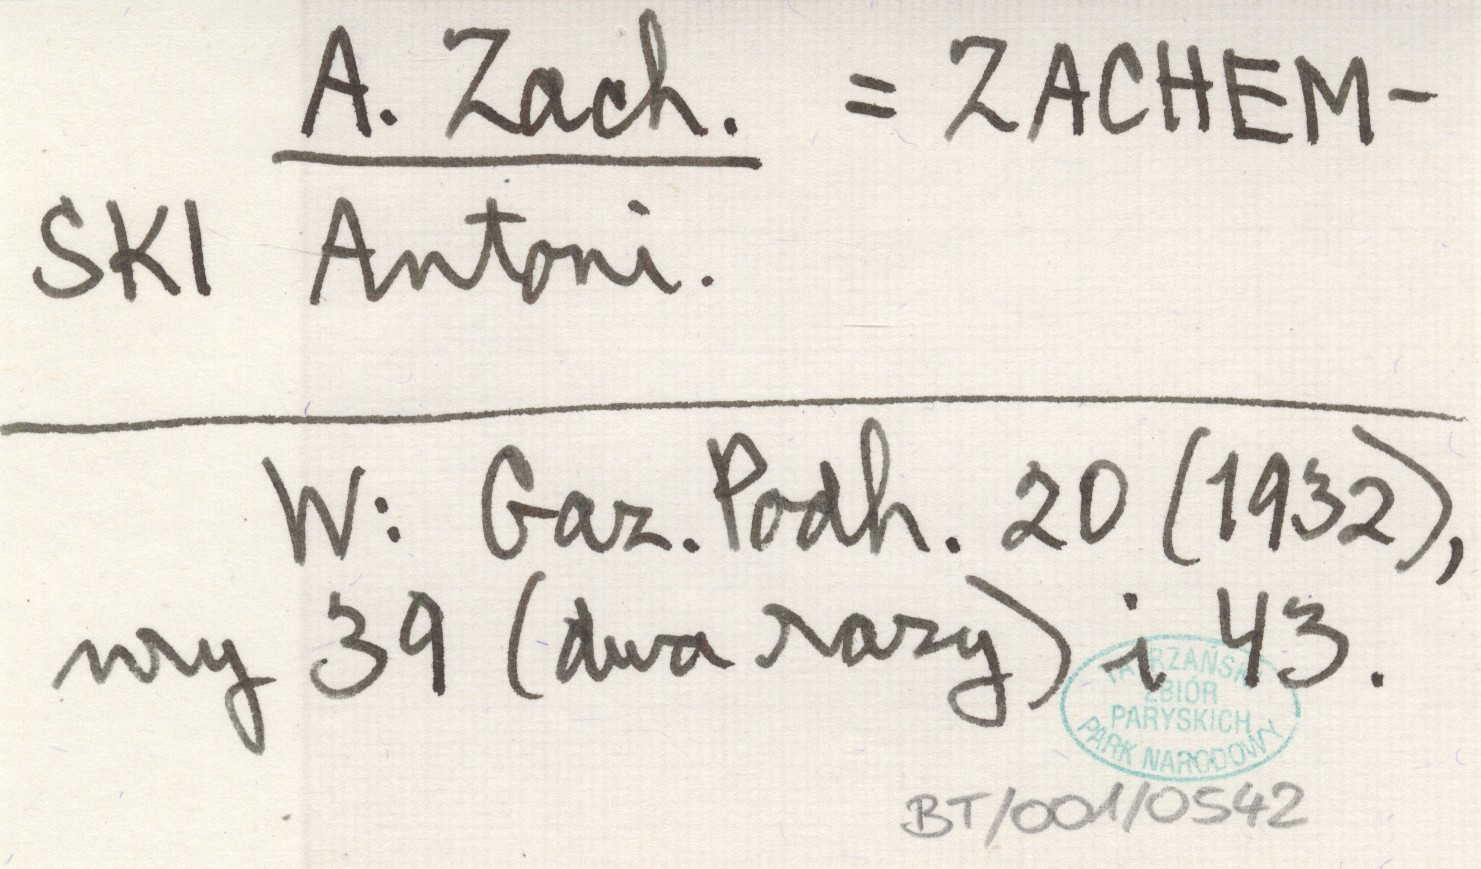 A. Zach. = ZACHEM-
SKI Antoni.
W: Gaz. Podh. 20 (1932),
nry 39 (dwa razy) i 43.
TATRZAŃSKI
ZBIÓR
PARYSKICH
PARK NARODOWY
BT/001/0542